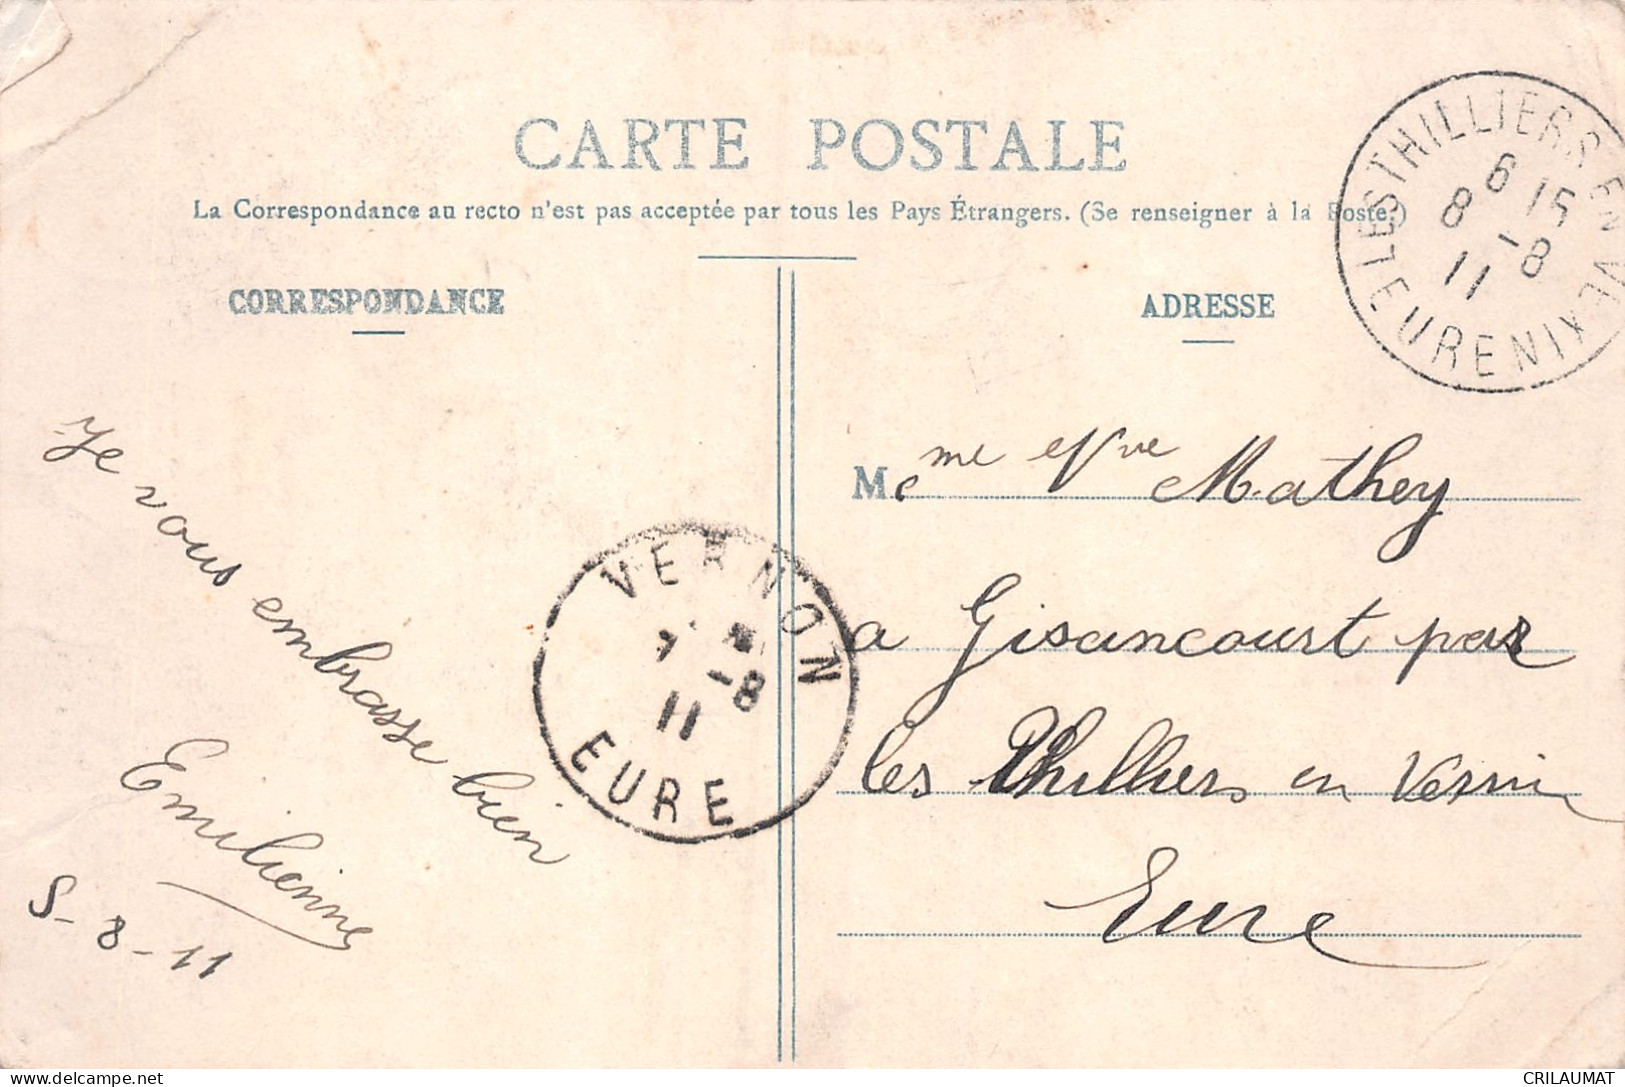 CARTE POSTALE
La Correspondance au recto n'est pas acceptée par tous les Pays Étrangers. (Se renseigner à la Poste.)
CORRESPONDANCE
ADRESSE
LES THILLIERS EN VEXIN EURE
6 15
8 -8
11
Je vous embrasse bien
Emilienne
5-8-11
VERNON
-8
11
EURE
Mme Vve Mathey
a Gisancourt par
les Thilliers en Vexin
Eure
CRILAUMAT